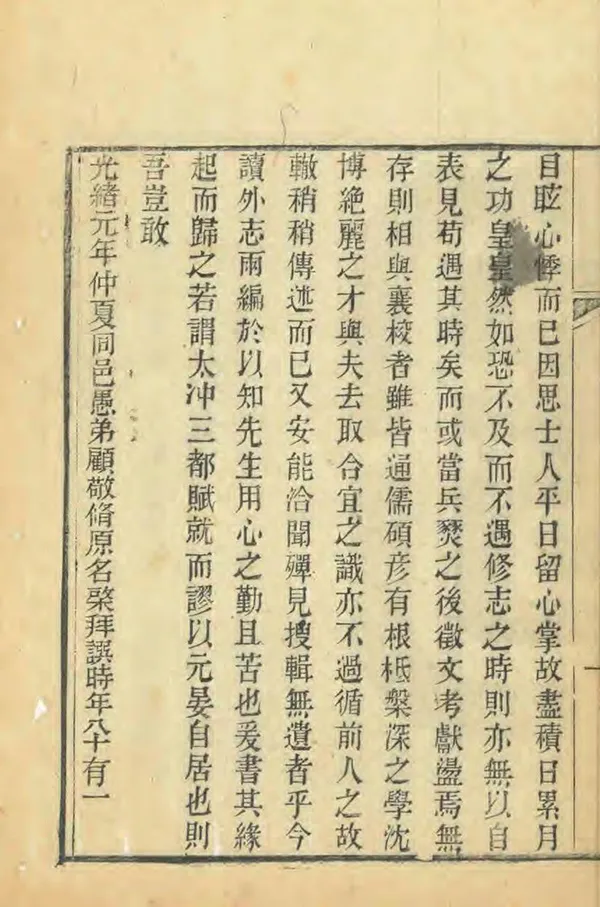 目眩心悸而已因思士人平日留心掌故盡積日累月
之功皇皇然如恐不及而不遇修志之時則亦無以自
表見苟遇其時矣而或當兵燹之後徵文考獻盪焉無
存則相與襄校者雖皆通儒碩彥有根柢槃深之學沈
博絶麗之才與夫去取合宜之識亦不過循前人之故
轍稍稍傳述而已又安能洽聞殫見搜輯無遺者乎今
讀外志兩編於以知先生用心之勤且苦也爰書其緣
起而歸之若謂太冲三都賦就而謬以元晏自居也則
吾豈敢
光緒元年仲夏同邑愚弟顧敬脩原名棨拜譔時年八十有一